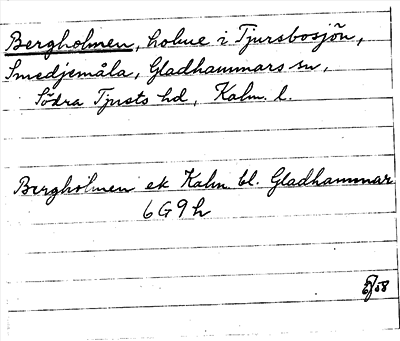 Bergholmen, holme i Tjursbosjön,
Smedjemåla, Gladhammars sn,
Södra Tjusts hd, Kalm. l.
Bergholmen ek Kalm bl. Gladhammar
6G9h
58